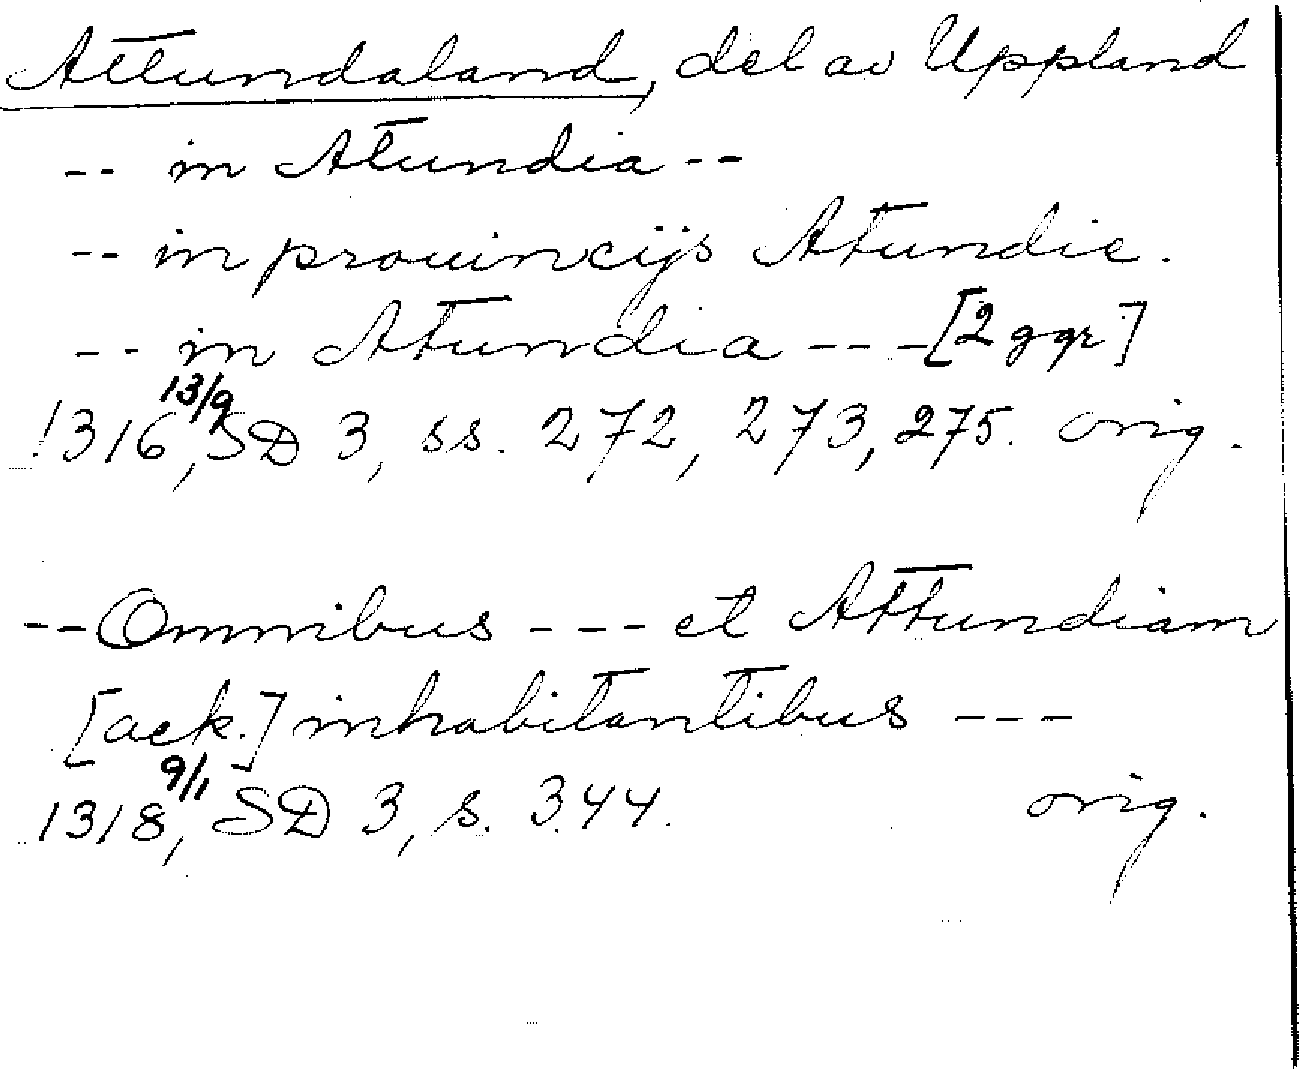 Attundaland, del av Uppland
-- in Atundia --
-- in prouincijs Atundie.
-- in Atundia --- [2 ggr]
1316 13/9, SD 3, ss. 272, 273, 275. orig.
-- Omnibus --- et Attundiam
[ack.] inhabitantibus ---
1318 9/1, SD 3, s. 344. orig.